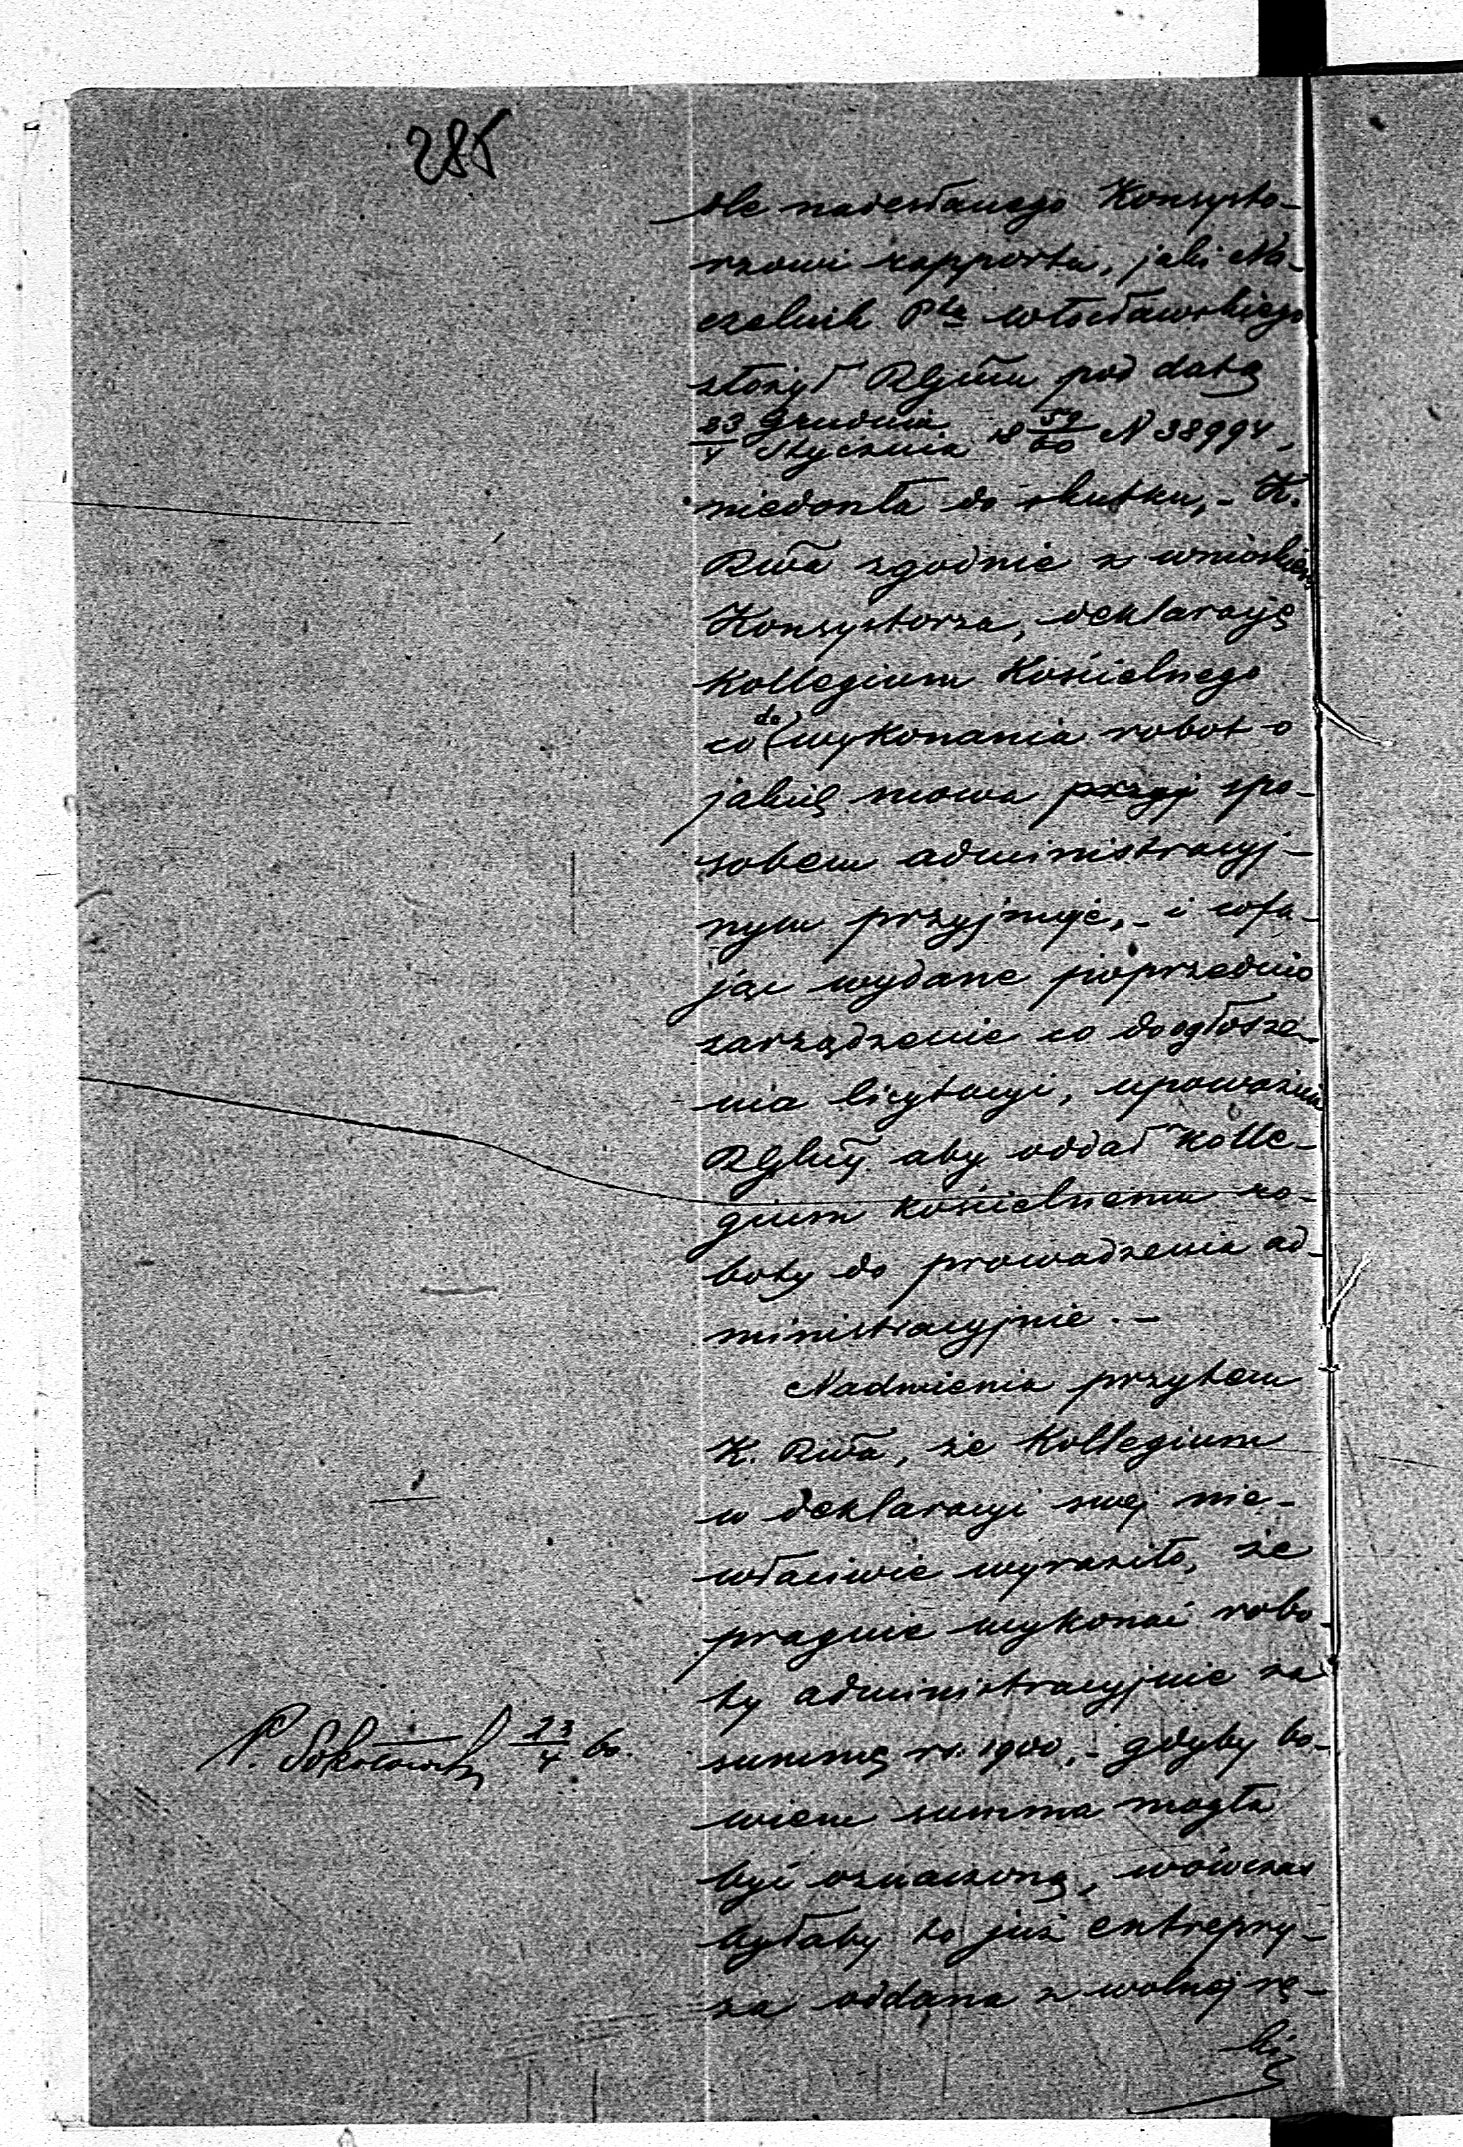 285
dle nadesłanego Konsysto-
rzowi rapportu, jaki Na-
czelnik Ptu włocławskiego
złożył RGłnu pod datą
23 Grudnia / 4 Stycznia 18 59/60 N 38994,
niedoszła do skutku, - K.
Rwa zgodnie z wnioskiem
Konsystorza, deklaracyę
Kollegium Kościelnego
co do wykonania robot o
jakię mowa spo-
sobem administracyj-
nym przyjmuje, - i cofa-
jąc wydane poprzednio
zarządzenie co do ogłosze-
nia licytacyi, upoważnia
aby oddał Kolle-
gium kościelnemu ro-
boty do prowadzenia ad-
ministracyjnie. -
Nadmienia przytem
K. Rwa, że Kollegium
w deklaracyi swej nie-
właściwie wyraziło, że
pragnie wykonać robo-
ty administracyjnie za
summę rs. 1900, - gdyby bo-
wiem summa mogła
być oznaczoną, wówczas
byłaby to już entrepry-
za oddana z wolnej rę-
ki
Sokołowski 23/4 60.